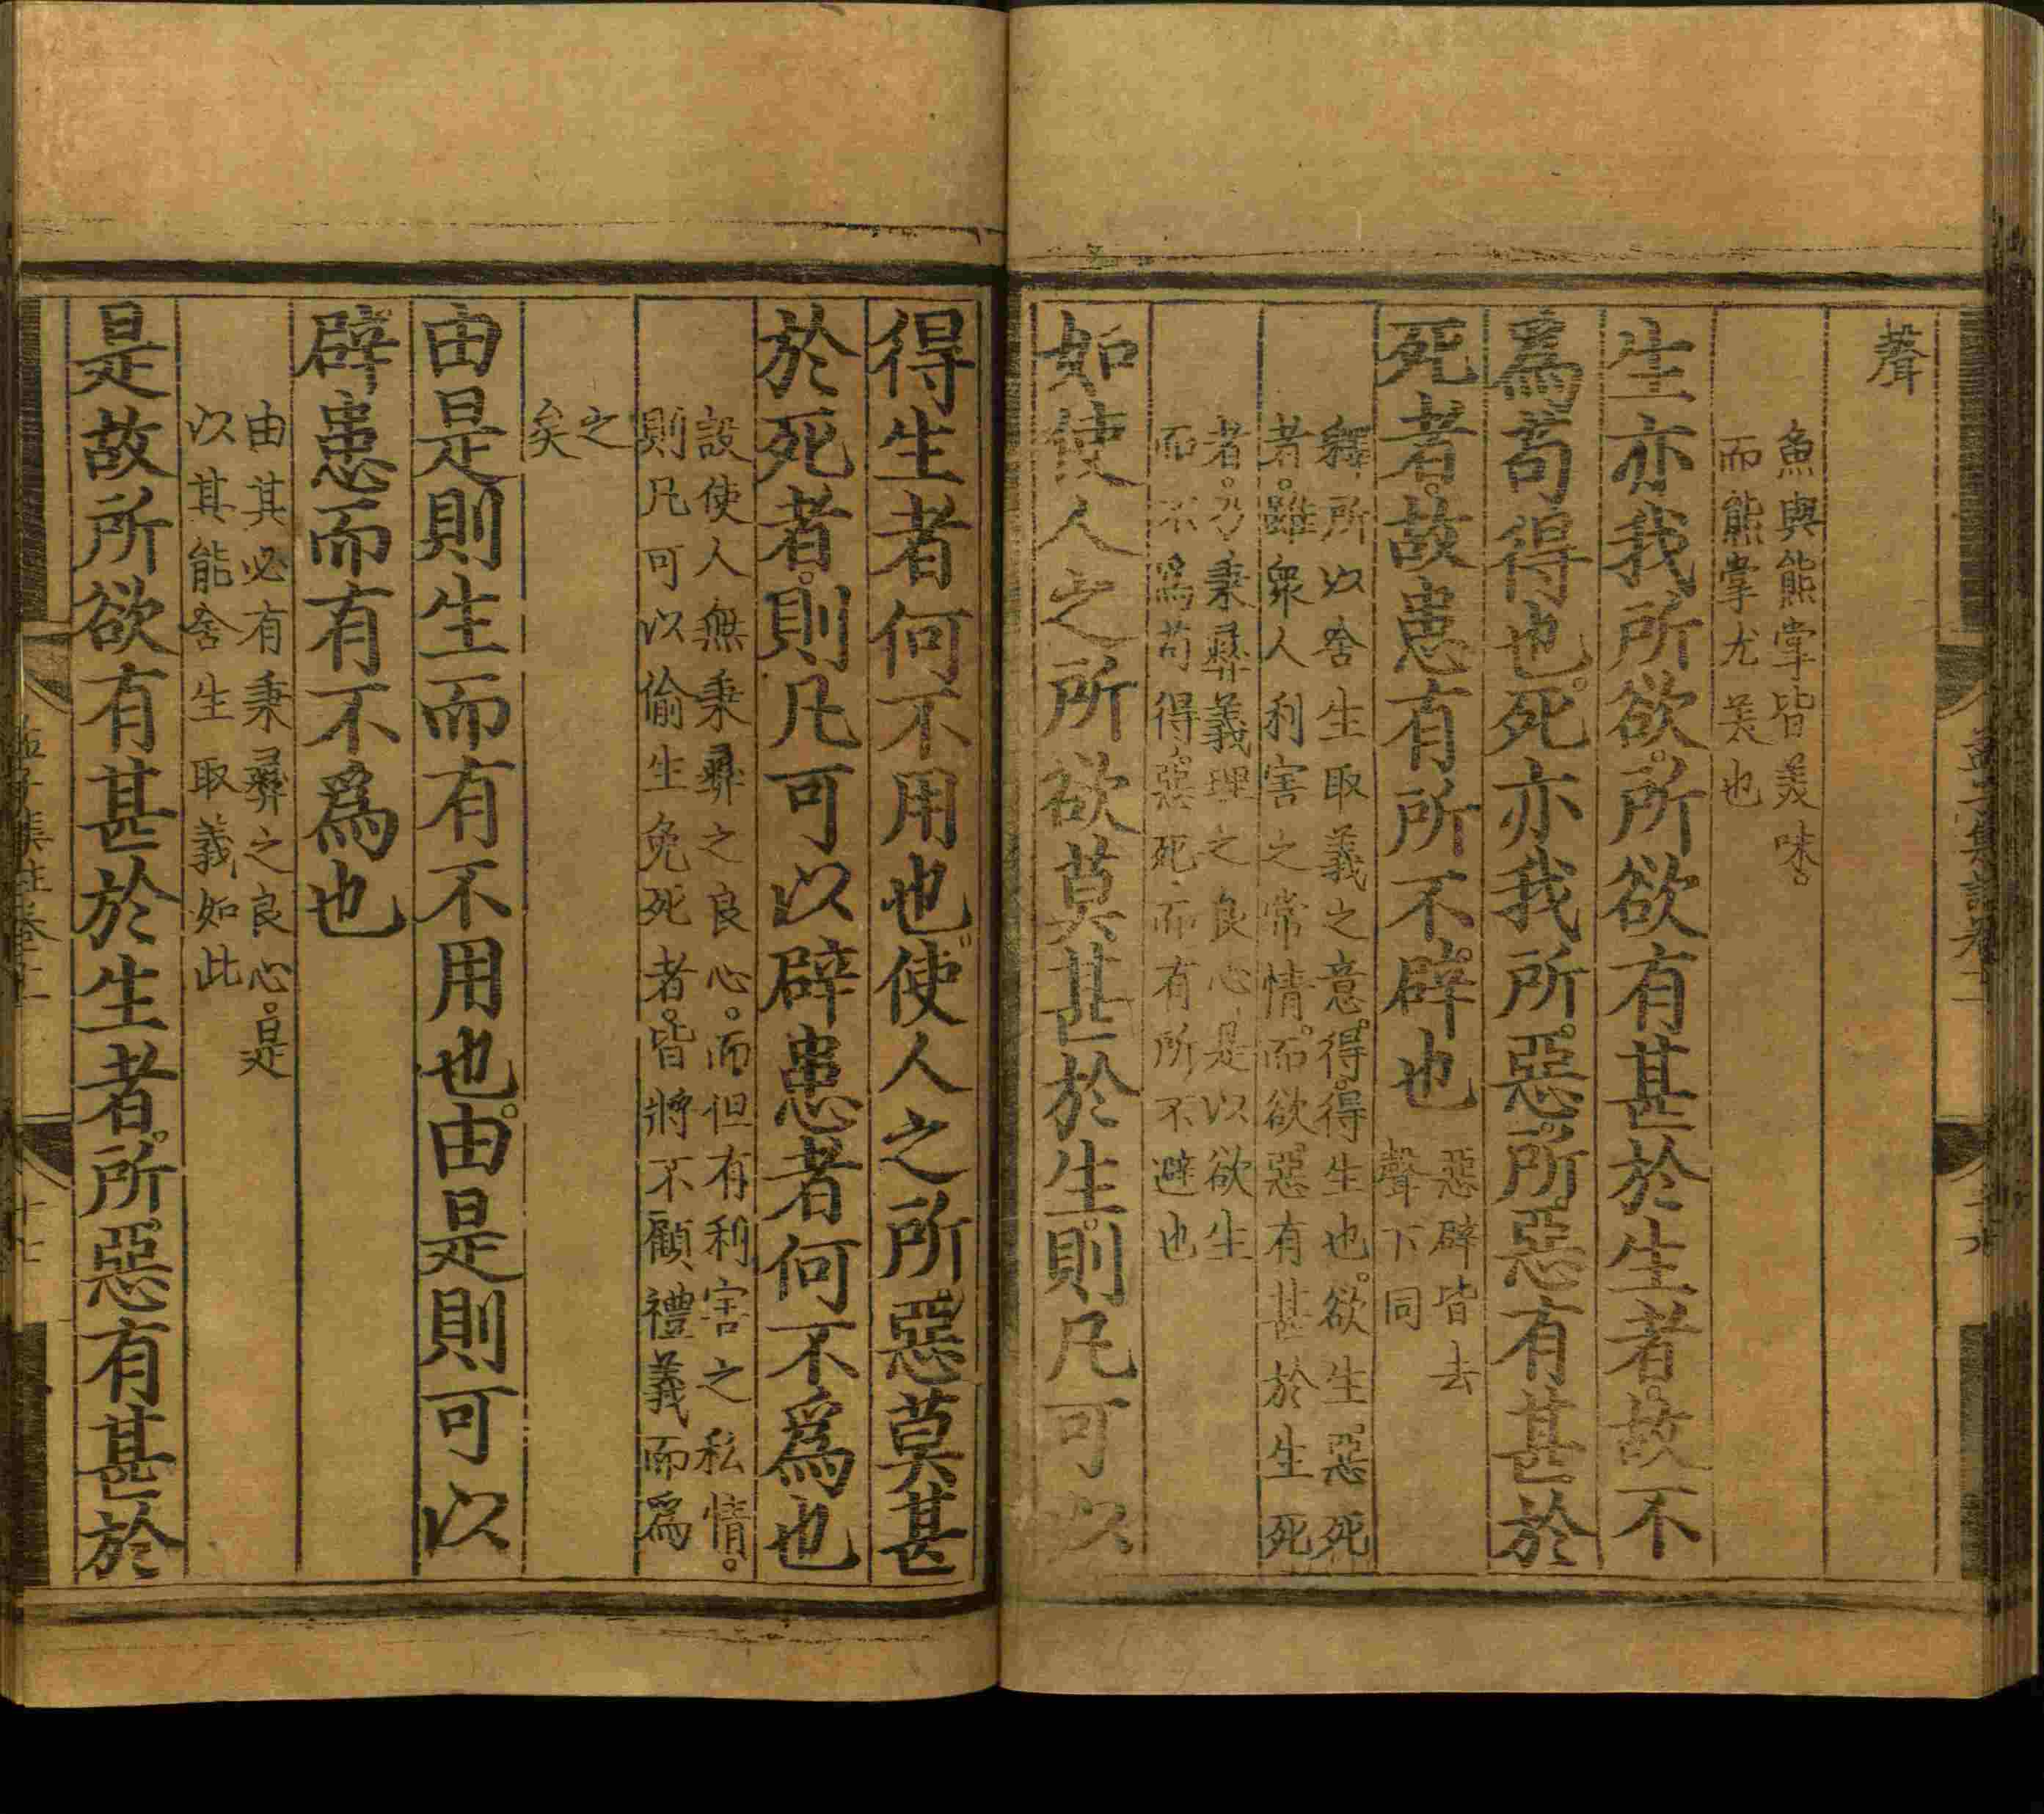 聲
魚與熊掌皆美味。
而熊掌尤美也
生亦我所欲。所欲有甚於生者。故不
爲苟得也。死亦我所惡。所惡有甚於
死者。故患有所不辟也
惡辟皆去
聲下同
釋所以舍生取義之意。得。得生也。欲生惡死
者。雖衆人利害之常情。而欲惡有甚於生死
者。乃秉彞義理之良心。是以欲生
而不爲苟得。惡死而有所不避也
如使人之所欲莫甚於生。則凡可以
得生者何不用也。使人之所惡莫甚
於死者。則凡可以辟患者何不爲也
設使人無秉彞之良心。而但有利害之私情。
則凡可以偷生免死者。皆將不顧禮義而爲
之
矣
由是則生而有不用也。由是則可以
辟患而有不爲也
由其必有秉彞之良心。是
以其能舍生取義如此
是故所欲有甚於生者。所惡有甚於